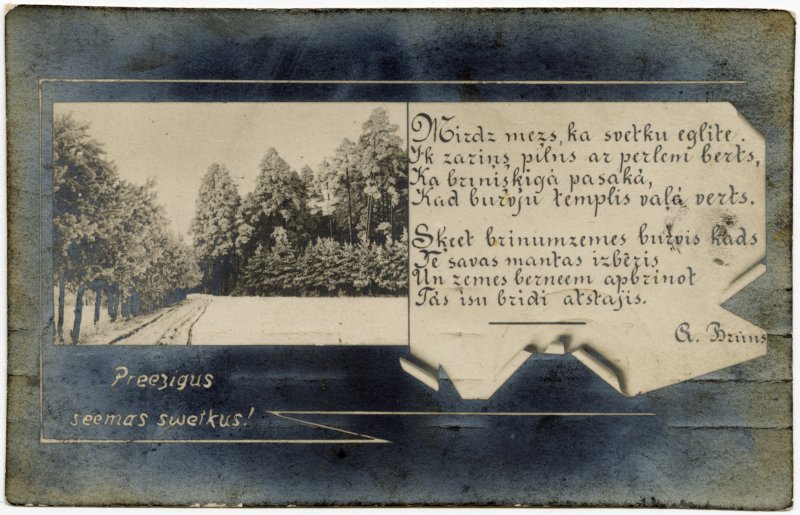 Mirdz mezs, ka svetku eglite.
Ik zariņs pilns ar perlem berts,
Ka briniškigá pasaká,
Kad burvju templis valá verts.
Skeet brinumzemes burvis kads
Te savas mantas izbēris
Un zemes berneem apbrinot
Tás isu bridi atstajis.
A. Brúns
Preezigus
seemas swetkus!